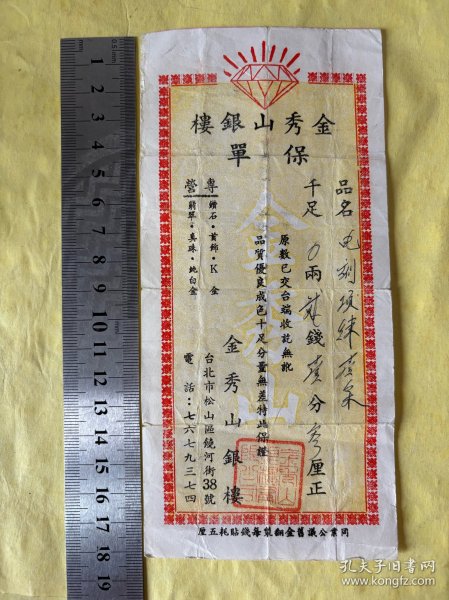 金秀山銀樓
保單
品名 電刻項鍊壹条
千足 0兩貳錢壹分參厘正
原數已交台端收訖無訛
品質優良成色十足分量無差特此保證
金秀山銀樓
台北市松山區饒河街38號
電話：七六七九三七四
專營
鑽石・首飾・K金
翡翠・真珠・純白金
金秀山
同業公議舊金翻製每錢貼耗五厘
0.5mm
1
2
3
4
5
6
7
8
9
10
11
12
13
14
15
16
17
18
19
孔夫子旧书网
kongfz.com